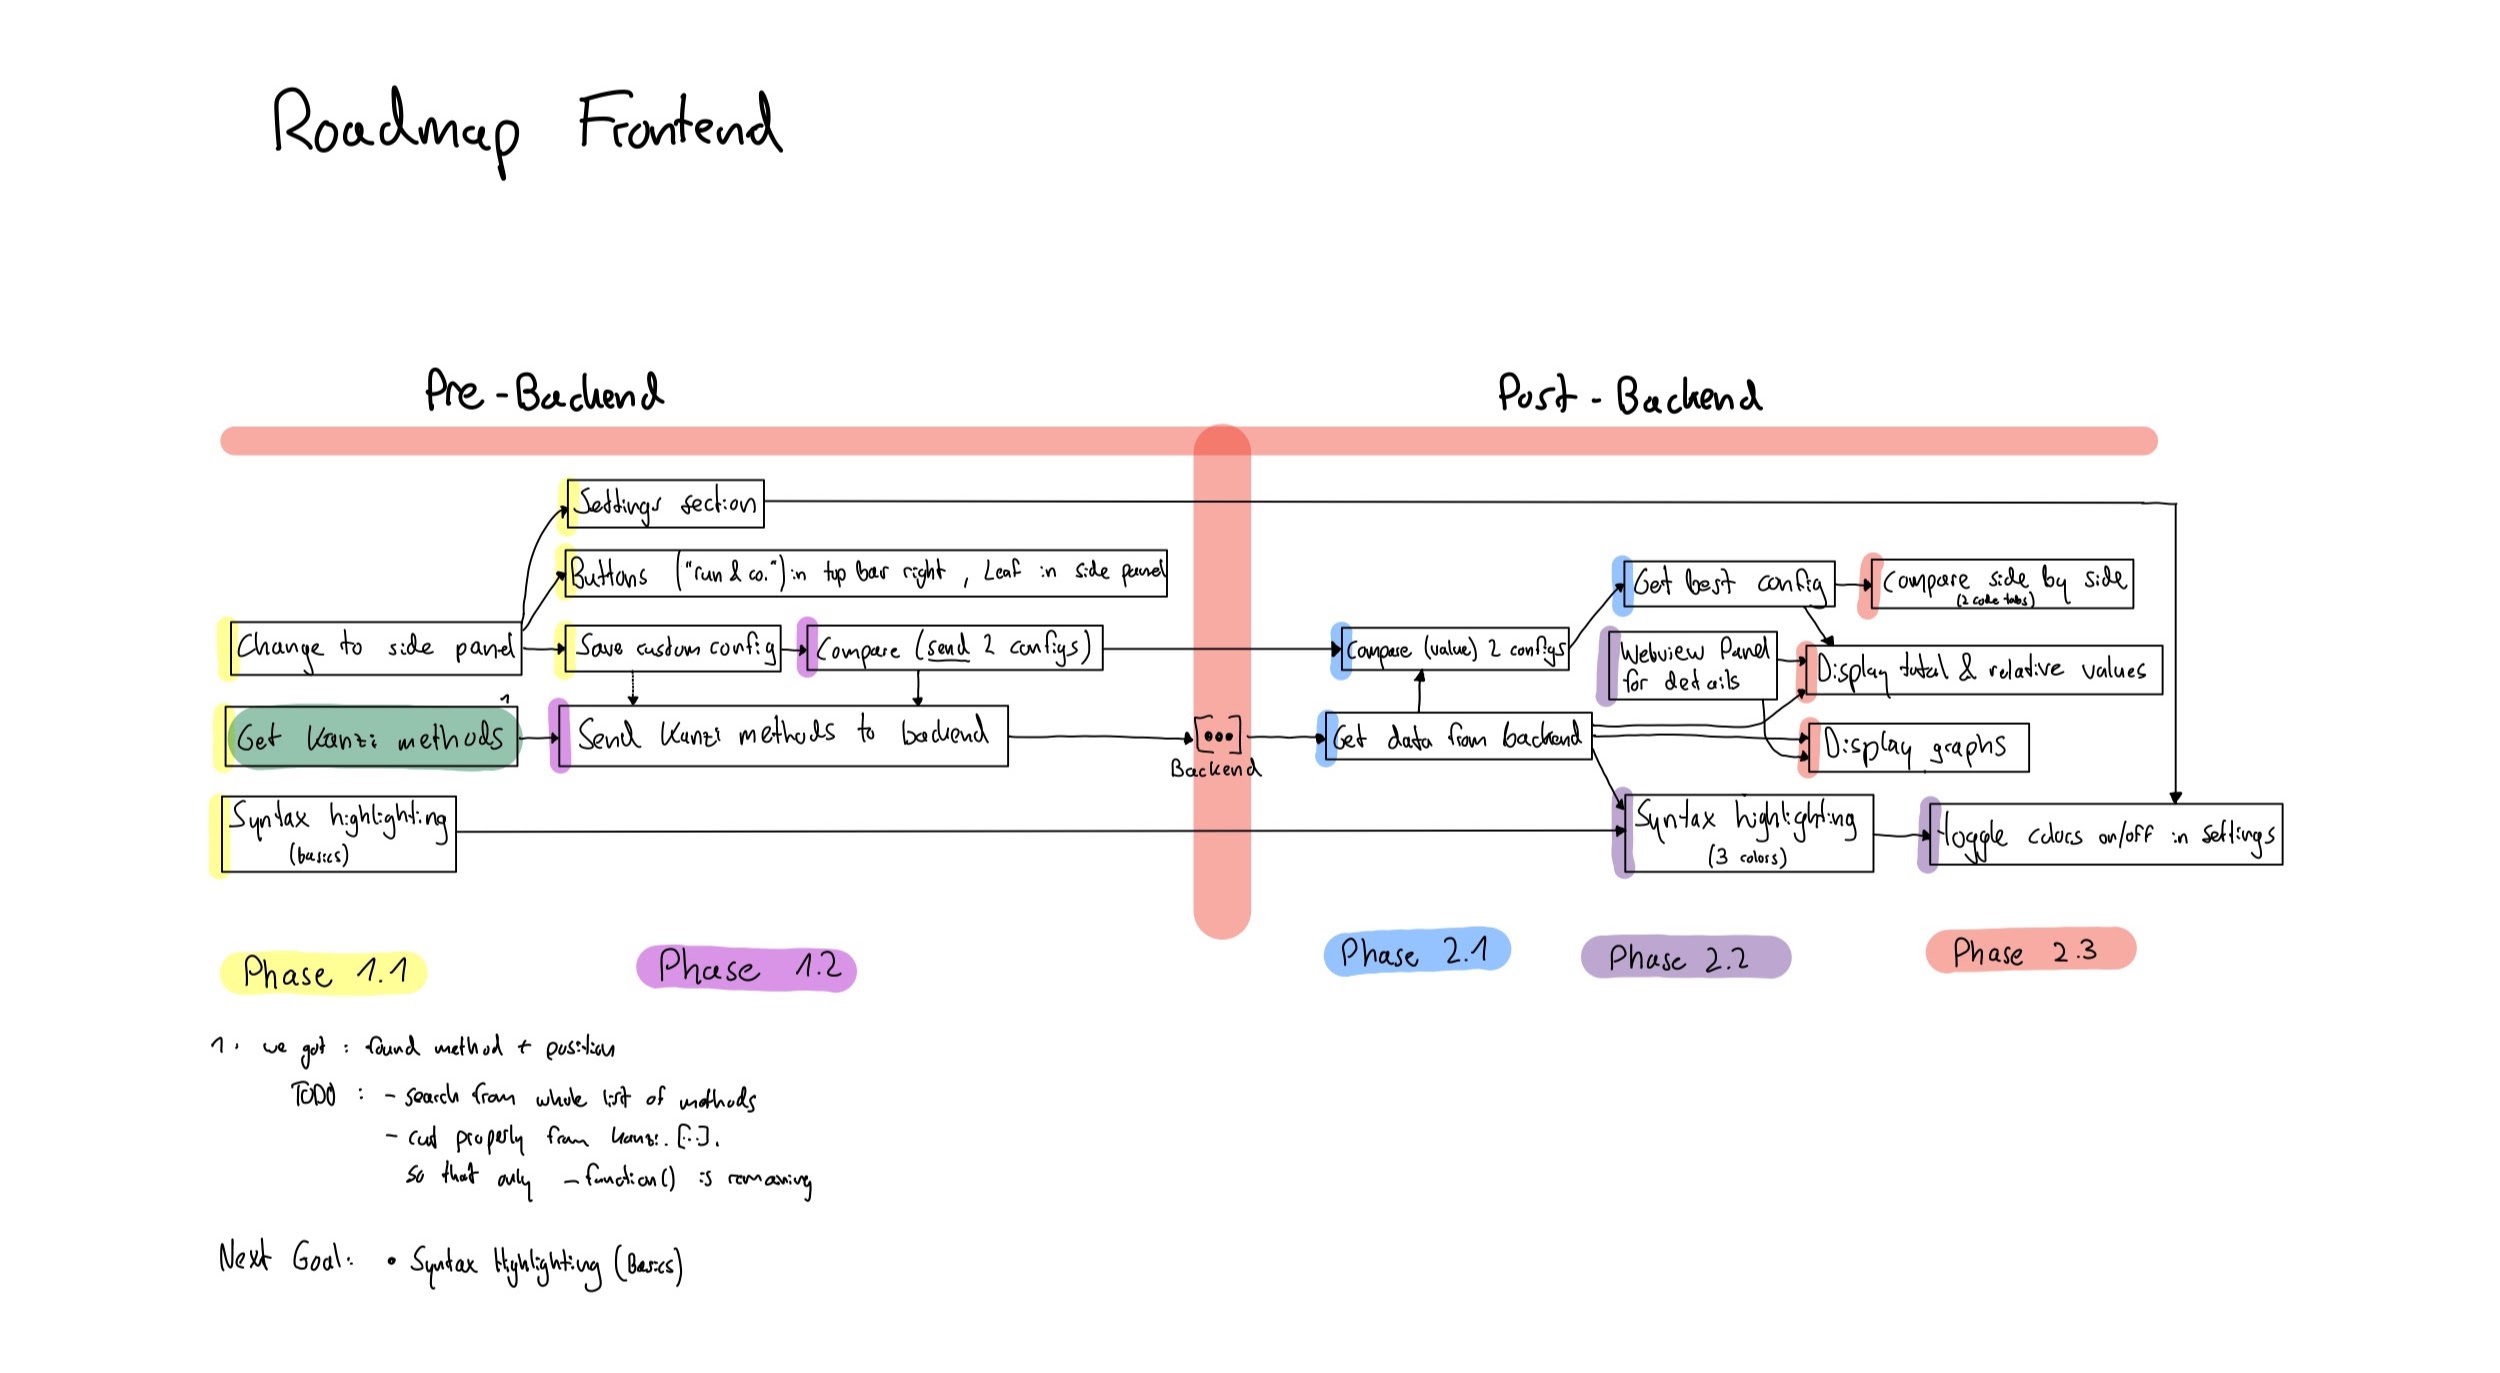 Roadmap Frontend
Pre-Backend
Post-Backend
Settings section
Buttons ("run & co.") in top bar right, Leaf in side panel
Change to side panel
Save custom config
Compare (send 2 configs)
Get Kanzi methods 1
Send Kanzi methods to backend
Syntax highlighting
(basics)
[...]
Backend
Get best config
Compare side by side
(2 code tabs)
Compare (value) 2 configs
Webview Panel
for details
Display total & relative values
Get data from backend
Display graphs
Syntax highlighting
(3 colors)
Toggle colors on/off in settings
Phase 1.1
Phase 1.2
Phase 2.1
Phase 2.2
Phase 2.3
1. we got: found method + position
TODO: - search from whole list of methods
- cut properly from kanzi.[...].
so that only -function() is remaining
Next Goal: • Syntax Highlighting (Basics)